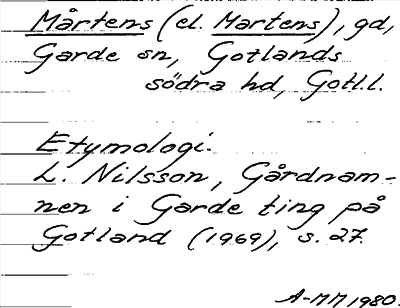 Mårtens (el. Martens), gd,
Garde sn, Gotlands
södra hd, Gotl.l.
Etymologi.
L. Nilsson, Gårdnam-
nen i Garde ting på
Gotland (1969), s. 27.
A-MM, 1980.